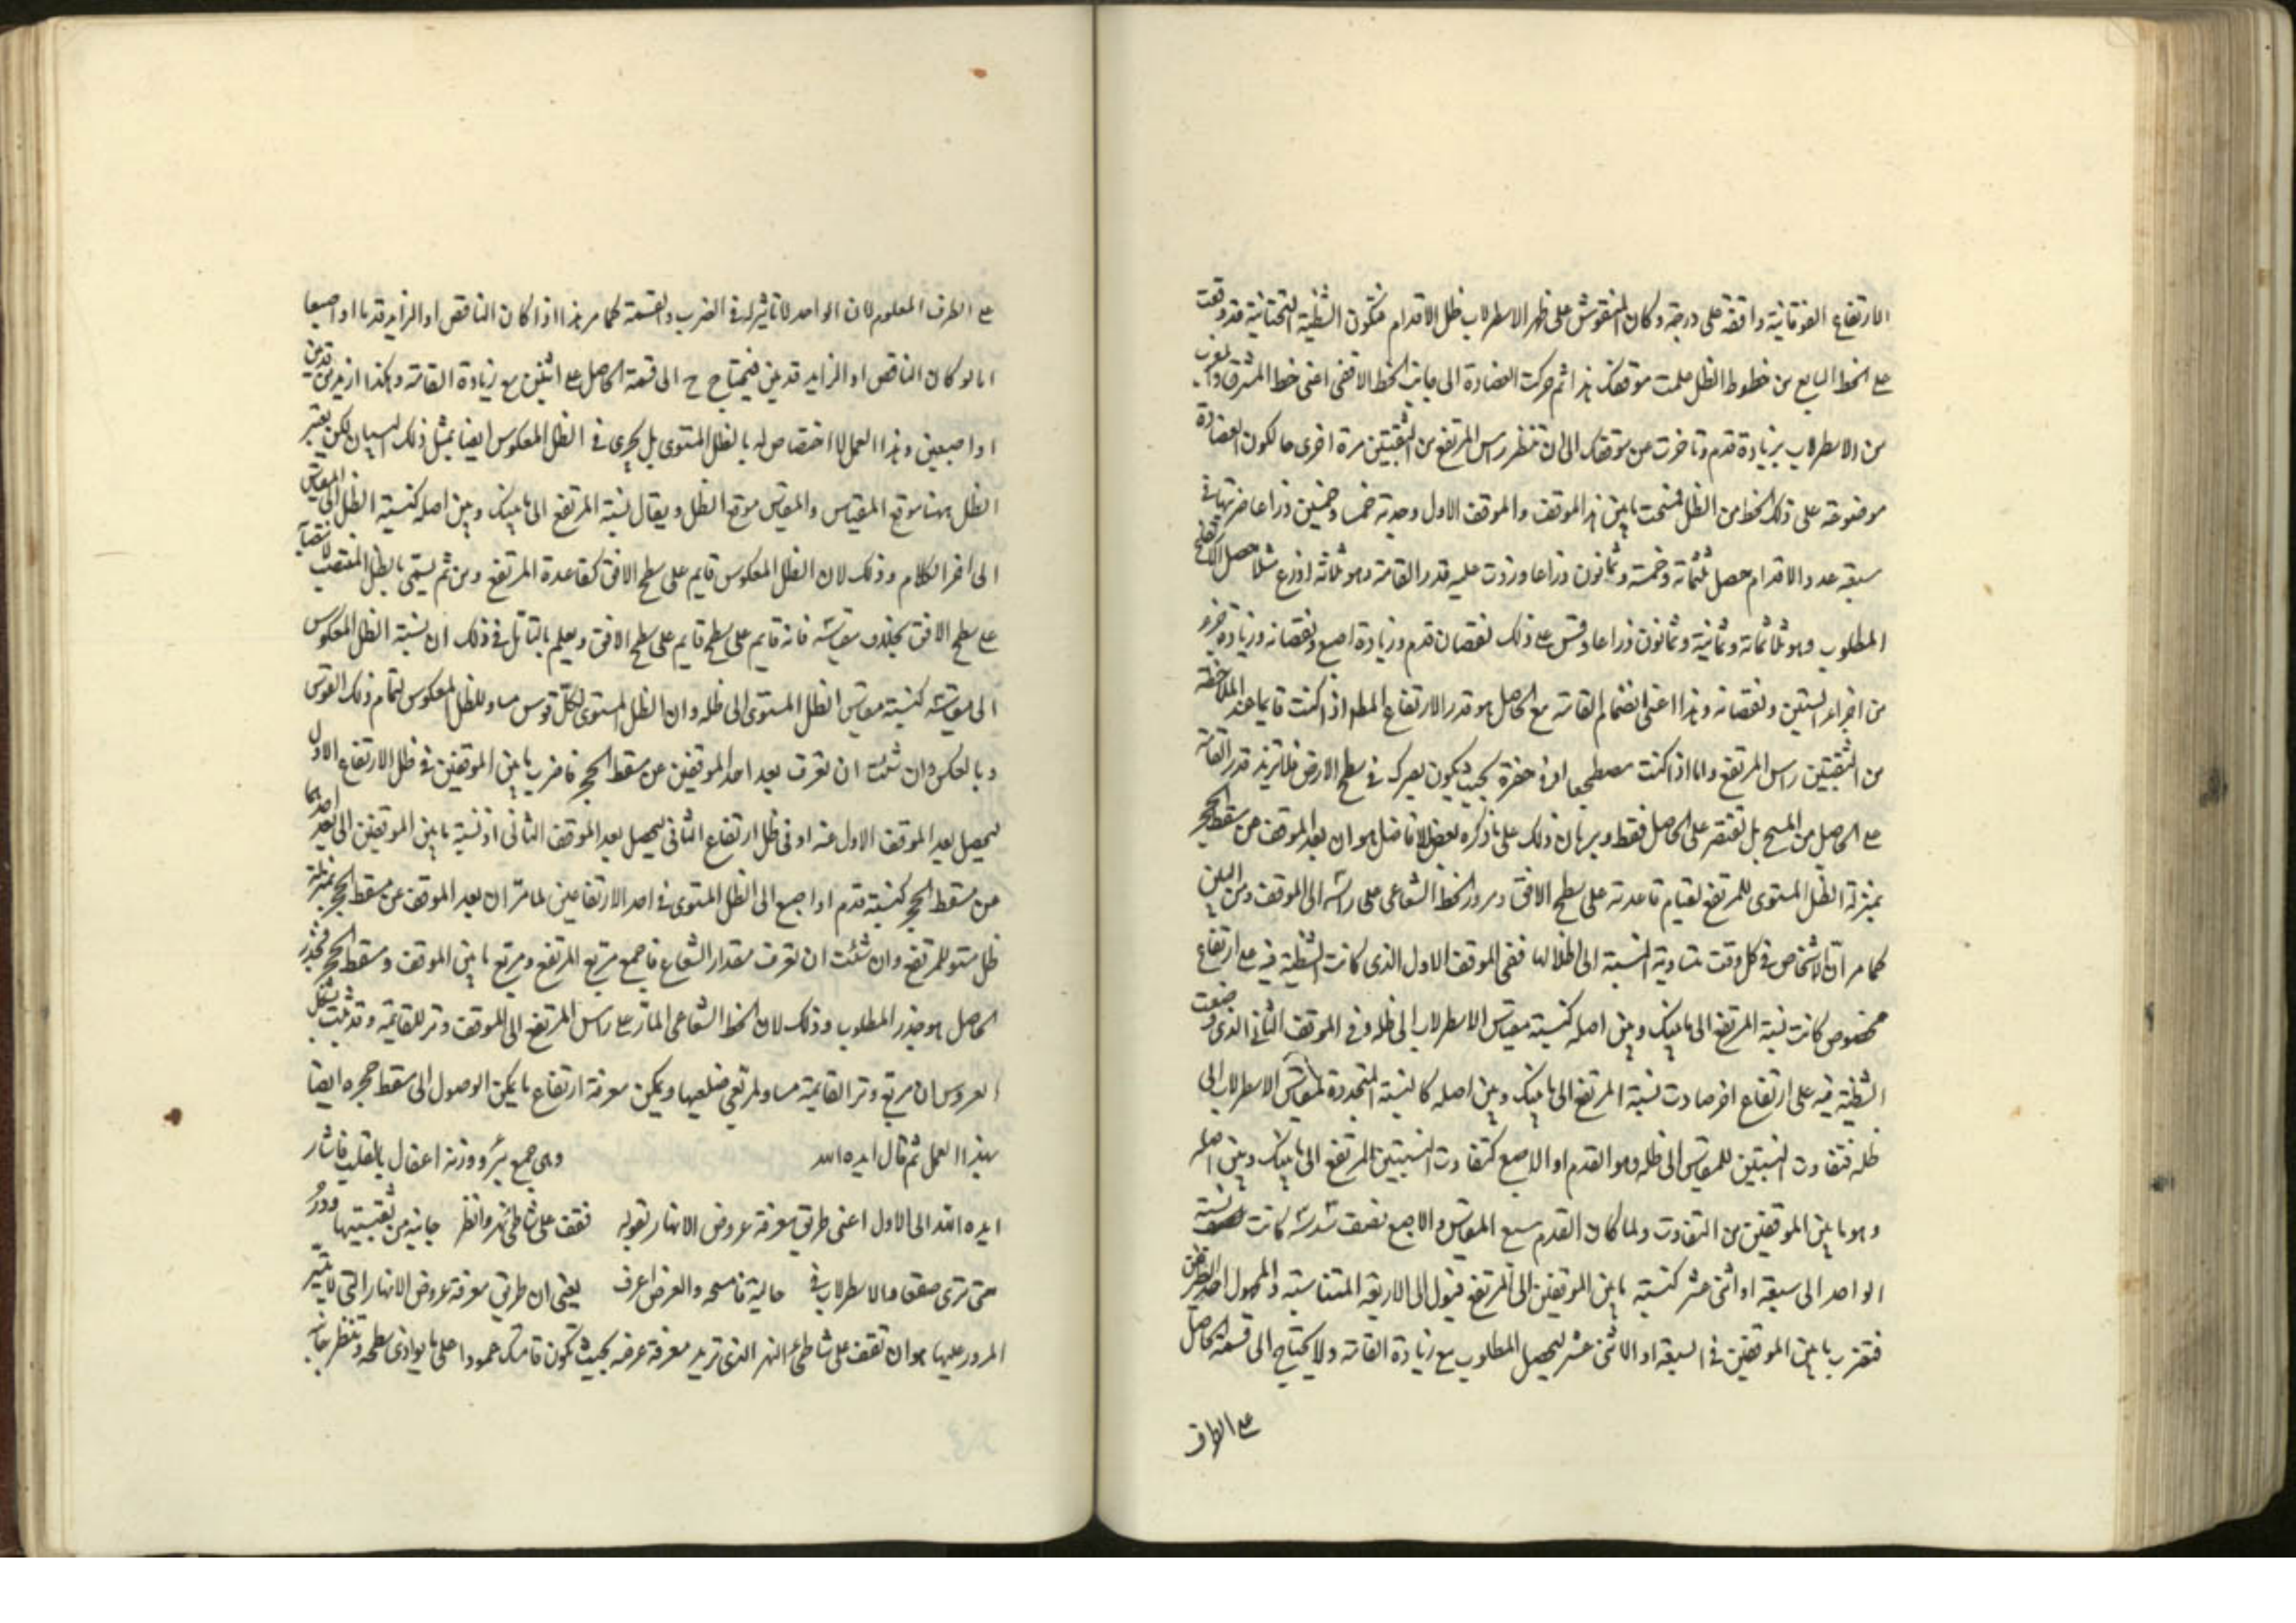 الارتفاع الفوقانية واقفة على درجة وكان المنقوش على ظهر الاسطرلاب ظل الاقدام فتكون الشظية التحتانية قد وقعت
على الخط السابع من خطوط الظل علمت موقفك هذا ثم حركت العضادة الى جانب الخط الافقى اعنى خط المشرق والمغرب
من الاسطرلاب بزيادة قدم وتاخرت من موقفك الى ان تنظر راس المرتفع من الثقبتين مرة اخرى حالكون العضادة
موضوعة على ذلك الخط من الظل فمسحت ما بين هذا الموقف والموقف الاول وجدته خمسا وخمسين ذراعا ضربتها فى
سبعة عدد الاقدام حصل ثلثمائة وخمسة وثمانون ذراعا وزدت عليه قدر القامة وهو ثلاثة اذرع مثلا حصل الارتفاع
المطلوب وهو ثلاثمائة وثمانية وثمانون ذراعا وقس على ذلك نقصان قدم وزيادة اصبع ونقصانه وزيادة جزء
من اجزاء الستين ونقصانه وهذا اعنى انضمام القامة مع الحاصل هو قدر الارتفاع المط اذا كنت قايما عند الملاحظة
من الثقبتين راس المرتفع واما اذا كنت مضطجعا او فى حفرة بحيث يكون بصرك فى سطح الارض فلا تزيد قدر القامة
على الحاصل من المسح بل تقتصر على الحاصل فقط وبرهان ذلك على ما ذكره بعض الافاضل هو ان بعد الموقف من مسقط الحجر
بمنزلة الظل المستوى للمرتفع لقيام قاعدته على سطح الافق ومرور الخط الشعاعى على راسه الى الموقف ومن البين
كما مر ان الاشخاص فى كل وقت متساوية النسبة الى اظلالها ففى الموقف الاول الذى كانت الشظية فيه على ارتفاع
مخصوص كانت نسبة المرتفع الى ما بينك وبين اصله كنسبة مقياس الاسطرلاب الى ظله وفى الموقف الثانى الذى وضعت
الشظية فيه على ارتفاع اخر صارت نسبة المرتفع الى ما بينك وبين اصله كالنسبة المتجددة لمقياس الاسطرلاب الى
ظله فتفاوت النسبتين للمقياس الى ظله وهو القدم او الاصبع كتفاوت النسبتين للمرتفع الى ما بينك وبين اصله
وهو ما بين الموقفين من التفاوت ولما كان القدم سبع المقياس والاصبع نصف سدسه كانت نسبة
الواحد الى سبعة او اثنى عشر كنسبة ما بين الموقفين الى المرتفع فيؤل الى الاربعة المتناسبة والمجهول احد الطرفين
فتضرب ما بين الموقفين فى السبعة او الاثنى عشر ليحصل المطلوب مع زيادة القامة ولا يحتاج الى قسمة الحاصل
على الطرف
على الطرف المعلوم لان الواحد لا تاثير له فى الضرب والقسمة كما مر هذا اذا كان الناقص او الزايد قدما او اصبعا
اما لو كان الناقص او الزايد قدمين فيحتاج ح الى قسمة الحاصل على اثنين مع زيادة القامة وهكذا ازيد من قدمين
او اصبعين وهذا العمل لا اختصاص له بالظل المستوى بل يجرى فى الظل المعكوس ايضا بمثل ذلك البيان لكن يعتبر
الظل ههنا موقع المقياس والمقياس موقع الظل ويقال نسبة المرتفع الى ما بينك وبين اصله كنسبة الظل الى المقياس
الى اخر الكلام وذلك لان الظل المعكوس قايم على سطح الافق كقاعدة المرتفع ومن ثم يسمى بالظل المنتصب لانتصابه
على سطح الافق بخلاف مقياسه فانه قايم على سطح قايم على سطح الافق ويعلم بالتامل فى ذلك ان نسبة الظل المعكوس
الى مقياسه كنسبة مقياس الظل المستوى الى ظله وان الظل المستوى لكل قوس مساو للظل المعكوس لتمام ذلك القوس
وبالعكس وان شئت ان تعرف بعد احد الموقفين من مسقط الحجر فاضرب ما بين الموقفين فى ظل الارتفاع الاول
ليحصل بعد الموقف الاول عنه او فى ظل ارتفاع الثانى ليحصل بعد الموقف الثانى اذ نسبة ما بين الموقفين الى بعد احدهما
من مسقط الحجر كنسبة قدم او اصبع الى الظل المستوى فى احد الارتفاعين لما مر ان بعد الموقف من مسقط الحجر بمنزلة
ظل مستو للمرتفع وان شئت ان تعرف مقدار الشعاع فاجمع مربع المرتفع ومربع ما بين الموقف ومسقط الحجر فجذر
الحاصل هو جذر المطلوب وذلك لان الخط الشعاعى المار على راس المرتفع الى الموقف وتر للقايمة وقد ثبت بشكل
العروس ان مربع وتر القايمة مساو لمربعى ضلعيها ويمكن معرفة ارتفاع ما يمكن الوصول الى مسقط حجره ايضا
بهذا العمل ثم قال ايده الله وهى جمع بئر ووزنه اعفال بالقلب فاشار
ايده الله الى الاول اعنى طريق معرفة عروض الانهار بقوله فقف على شاطئ نهر وانظر جانبه من ثقبتيها ودر
حتى ترى صقعا والاسطرلاب فى حاليه فامسحه والعرض اعرف يعنى ان طريق معرفة عروض الانهار التى لا يتيسر
المرور عليها هو ان تقف على شاطئ النهر الذى تريد معرفة عرضه بحيث تكون قامتك عمودا على ما يوازى سطحه وتنظر جانبه